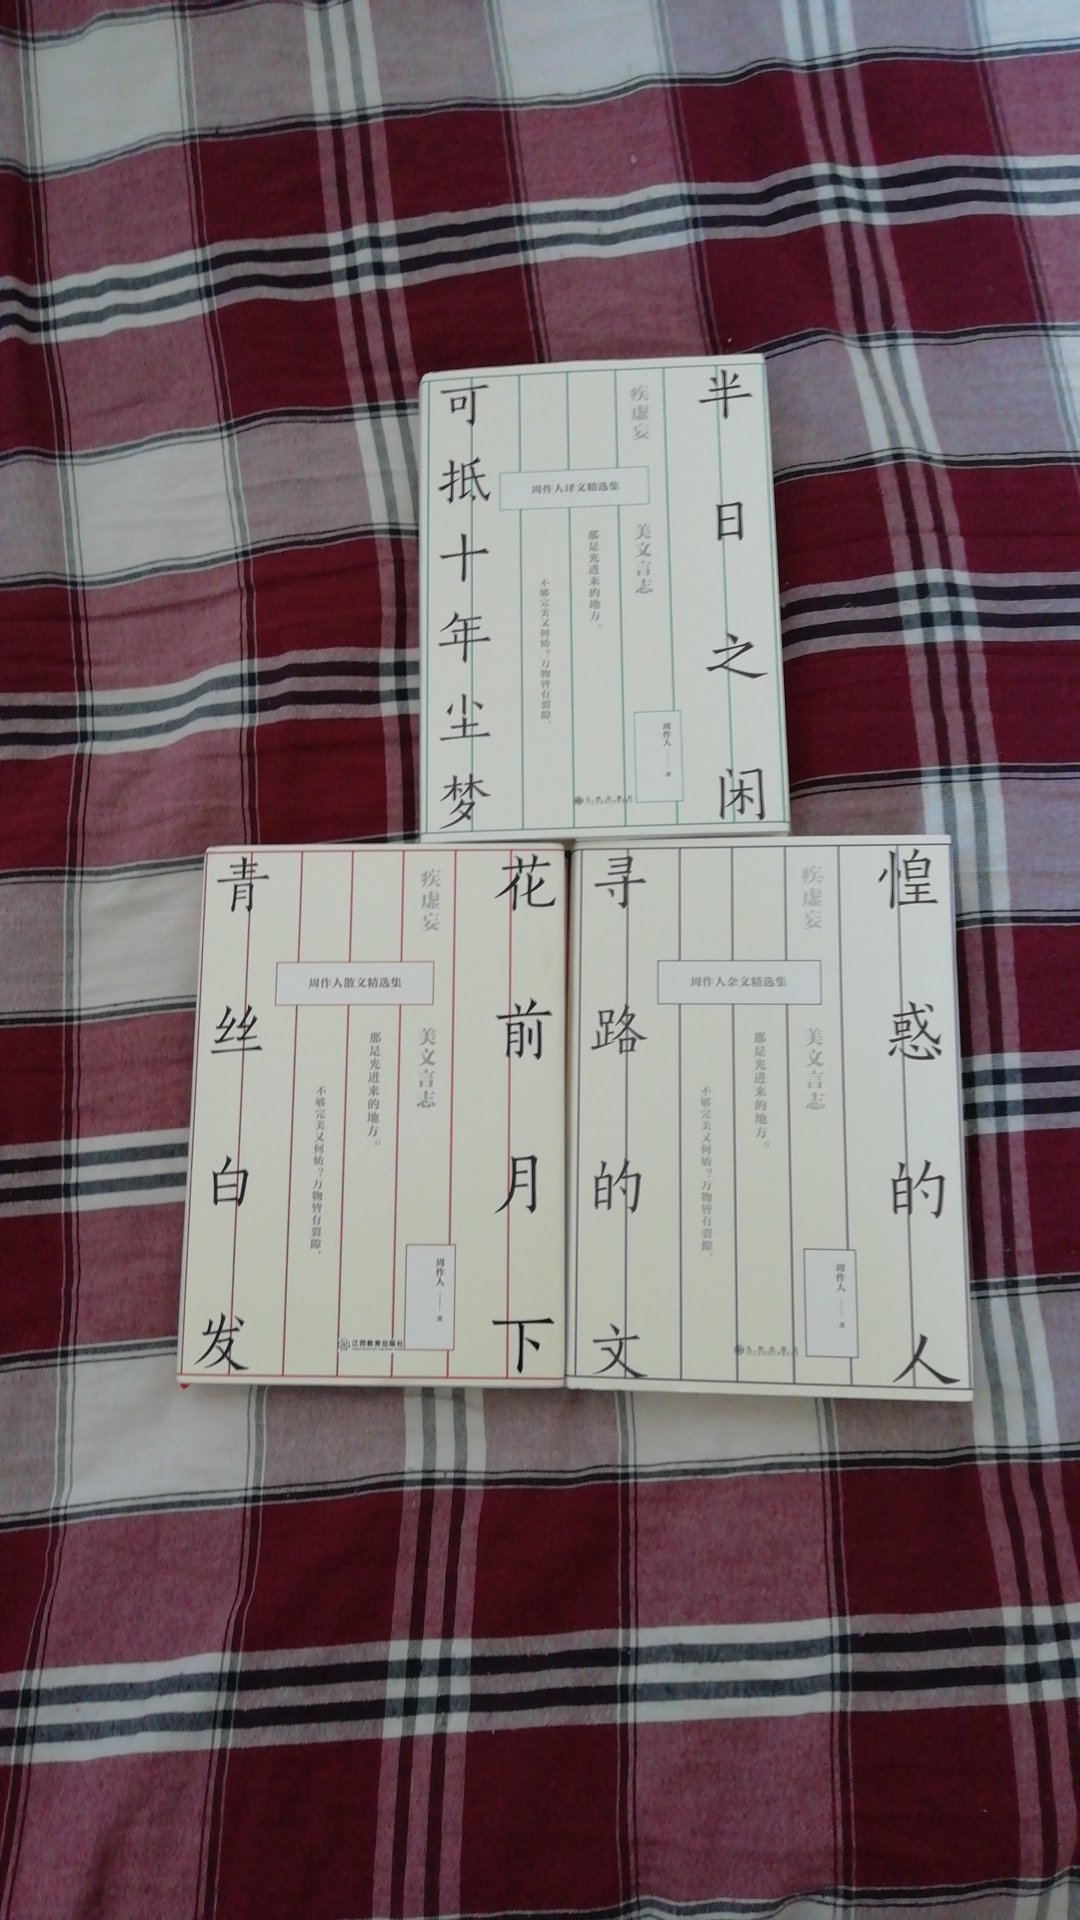 半日之闲
可抵十年尘梦
疾虚妄
美文言志
周作人译文精选集
那是光进来的地方。
不够完美又何妨?万物皆有裂隙,
周作人 著
花前月下
青丝白发
疾虚妄
美文言志
周作人散文精选集
那是光进来的地方。
不够完美又何妨?万物皆有裂隙,
周作人 著
江西教育出版社
惶惑的人
寻路的文
疾虚妄
美文言志
周作人杂文精选集
那是光进来的地方。
不够完美又何妨?万物皆有裂隙,
周作人 著